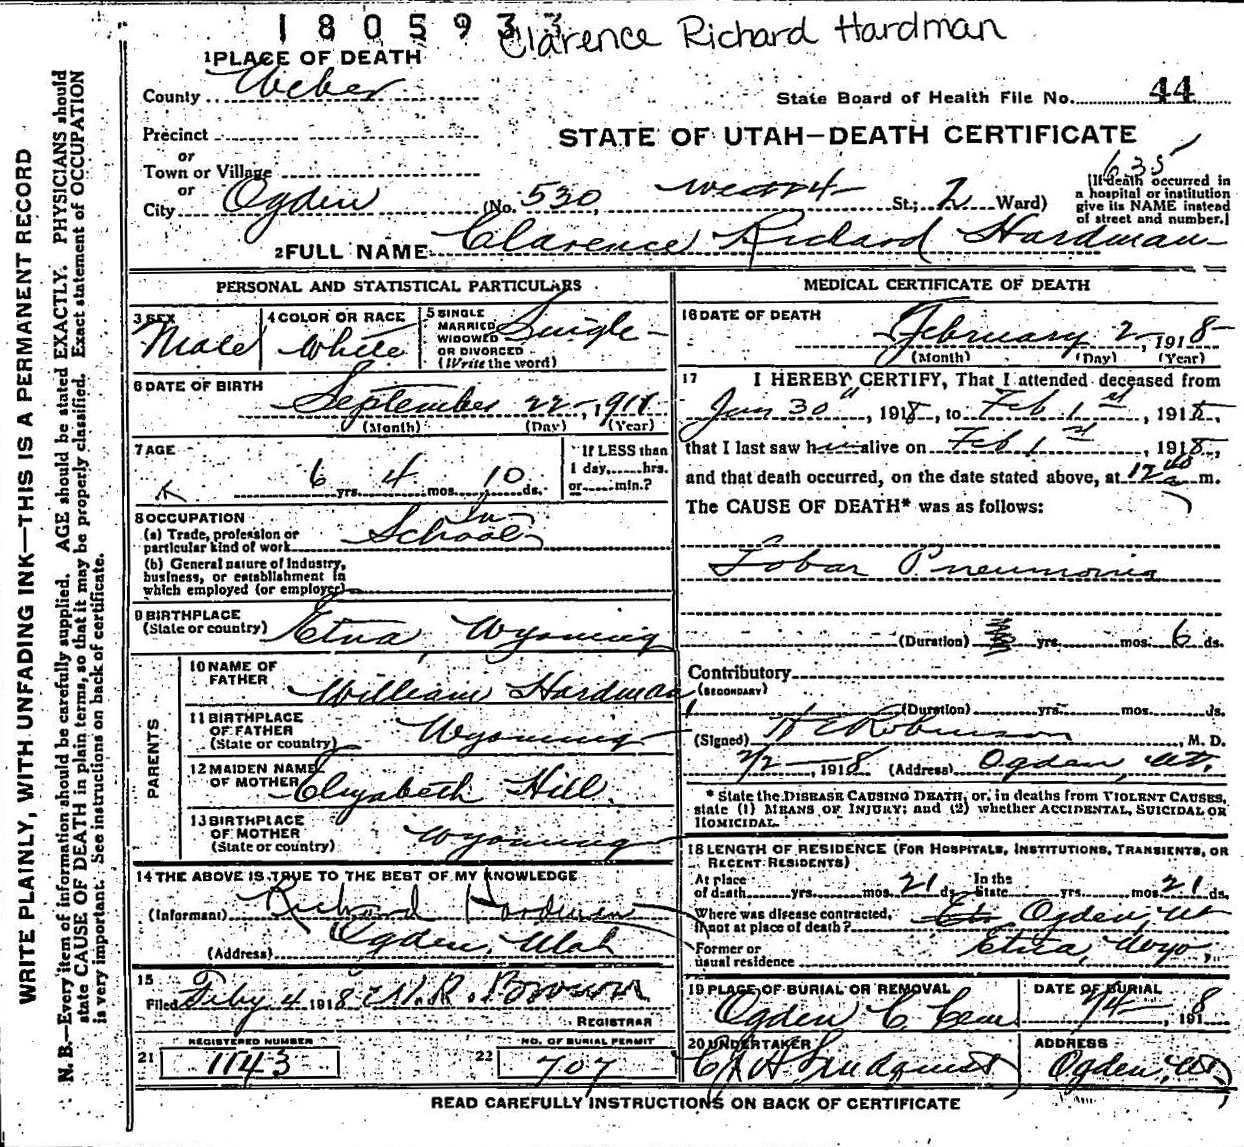 1805933
Clarence Richard Hardman
1 PLACE OF DEATH
County Weber
State Board of Health File No. 44
Precinct
or
STATE OF UTAH—DEATH CERTIFICATE
Town or Village
or
635
City Ogden (No. 530, West 4 St.; 2 Ward)
[If death occurred in
a hospital or institution
give its NAME instead
of street and number.]
2 FULL NAME Clarence Richard Hardman
PERSONAL AND STATISTICAL PARTICULARS
3 SEX Male
4 COLOR OR RACE White
5 SINGLE
MARRIED
WIDOWED
OR DIVORCED
(Write the word)
Single
6 DATE OF BIRTH
September 22, 1911
(Month) (Day) (Year)
7 AGE
6 yrs. 4 mos. 10 ds.
If LESS than
1 day,......hrs.
or......min.?
8 OCCUPATION
(a) Trade, profession or
particular kind of work
In School
(b) General nature of Industry,
business, or establishment in
which employed (or employer)
9 BIRTHPLACE
(State or country) Etna, Wyoming
PARENTS
10 NAME OF
FATHER William Hardman
11 BIRTHPLACE
OF FATHER
(State or country) Wyoming
12 MAIDEN NAME
OF MOTHER Elizabeth Hill
13 BIRTHPLACE
OF MOTHER
(State or country) Wyoming
14 THE ABOVE IS TRUE TO THE BEST OF MY KNOWLEDGE
(Informant) Richard Hardman
(Address) Ogden, Utah
15
Filed Feby 4 1918 W. R. Brown
REGISTRAR
21 REGISTERED NUMBER
1143
22 NO. OF BURIAL PERMIT
707
MEDICAL CERTIFICATE OF DEATH
16 DATE OF DEATH
February 2, 1918
(Month) (Day) (Year)
17 I HEREBY CERTIFY, That I attended deceased from
Jan 30", 1918, to Feb 1st, 1918,
that I last saw him alive on Feb 1st, 1918,
and that death occurred, on the date stated above, at 12 40 a m.
The CAUSE OF DEATH* was as follows:
Lobar Pneumonia
(Duration) yrs. mos. 6 ds.
Contributory
(SECONDARY)
(Duration) yrs. mos. ds.
(Signed) H C Robinson, M. D.
2/2, 1918 (Address) Ogden, Ut.
* State the DISEASE CAUSING DEATH, or, in deaths from VIOLENT CAUSES,
state (1) MEANS OF INJURY; and (2) whether ACCIDENTAL, SUICIDAL OR
HOMICIDAL.
18 LENGTH OF RESIDENCE (FOR HOSPITALS, INSTITUTIONS, TRANSIENTS, OR
RECENT RESIDENTS)
At place
of death yrs. mos. 21 ds.
In the
State yrs. mos. 21 ds.
Where was disease contracted,
if not at place of death? Ogden, Ut
Former or
usual residence Etna, Wyo,
19 PLACE OF BURIAL OR REMOVAL
Ogden C Cem
DATE OF BURIAL
2/4, 1918
20 UNDERTAKER
Lindquist
ADDRESS
Ogden, Ut,
READ CAREFULLY INSTRUCTIONS ON BACK OF CERTIFICATE
WRITE PLAINLY, WITH UNFADING INK—THIS IS A PERMANENT RECORD
N. B.—Every item of information should be carefully supplied. AGE should be stated EXACTLY. PHYSICIANS should
state CAUSE OF DEATH in plain terms, so that it may be properly classified. Exact statement of OCCUPATION
is very important. See instructions on back of certificate.